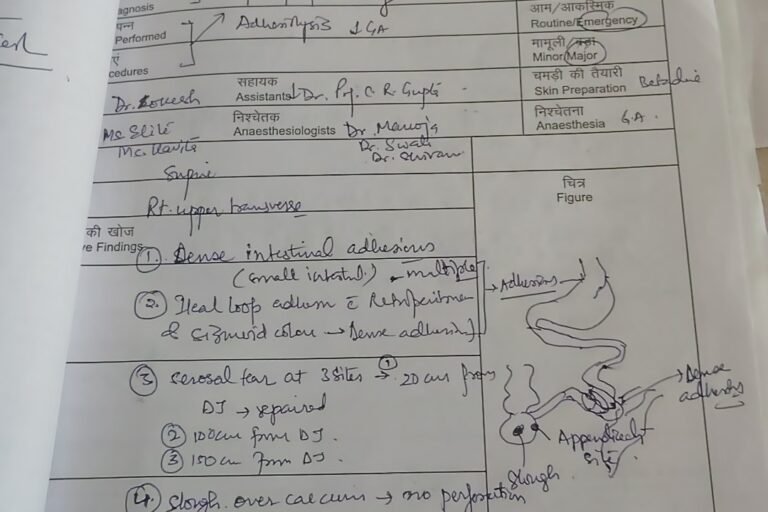 agnosis
पन्न
Performed
Adhesiolysis ↓ GA
आम/आकस्मिक
Routine/Emergency
मामूली/बड़ा
Minor/Major
ए
cedures
सहायक
Assistants Dr. Prof. C. R. Gupta
चमड़ी की तैयारी
Skin Preparation Betadine
निश्चेतक
Anaesthesiologists Dr. Manoja
Dr. Swati
Dr. Shivam
निश्चेतना
Anaesthesia G.A.
Supine
Rt. upper transverse
चित्र
Figure
की खोज
ve Findings
1. Dense intestinal adhesions
(small intestinal) - multiple
→ Adhesions
2. Ileal loop adherent c̄ Retroperitoneum
& sigmoid colon → Dense adhesions
3 serosal tear at 3 sites → 1 20 cm from
DJ → repaired
2 100 cm from DJ.
3 150 cm from DJ.
→ Dense
adhesions
Appendicect
site
Slough
4. slough over caecum → no perforation